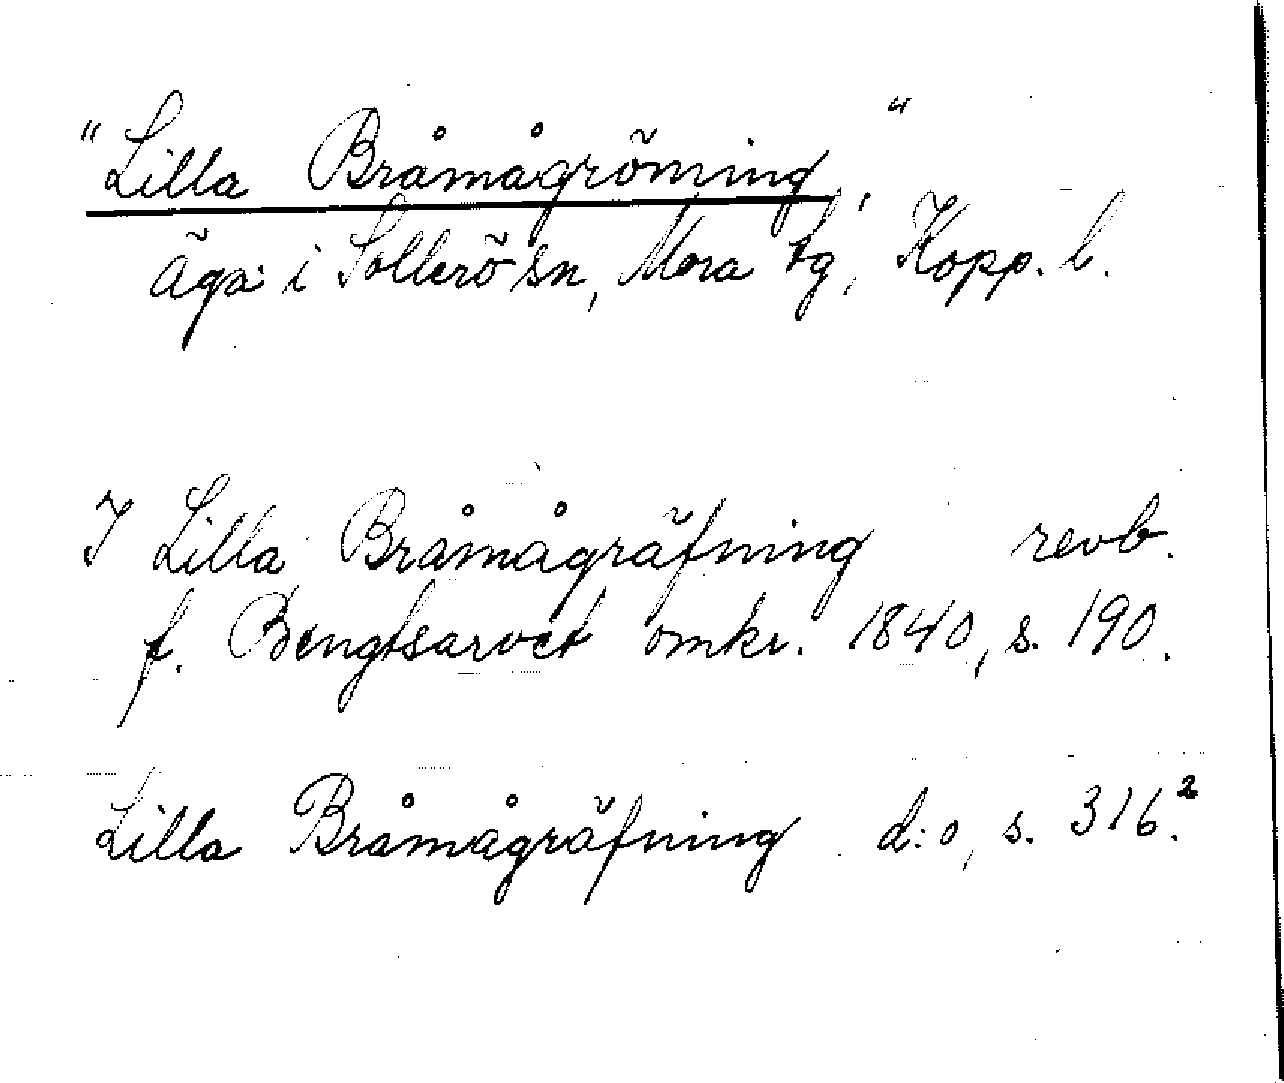 "Lilla Bråmågröning"
äga i Sollerö sn, Mora tg, Kopp. l.
I Lilla Bråmågräfning revb.
f. Bengtsarvet omkr. 1840, s. 190.
Lilla Bråmågräfning d:o, s. 316.²